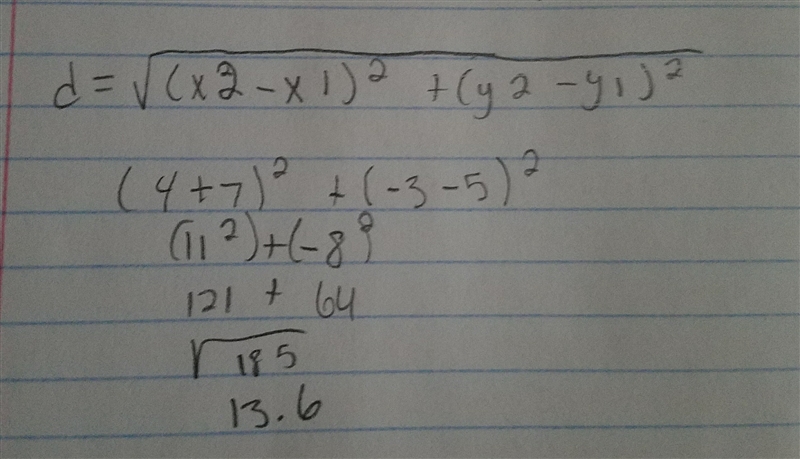 d = √(x2 - x1)² + (y2 - y1)²
(4 + 7)² + (-3 - 5)²
(11²) + (-8²)
121 + 64
√185
13.6